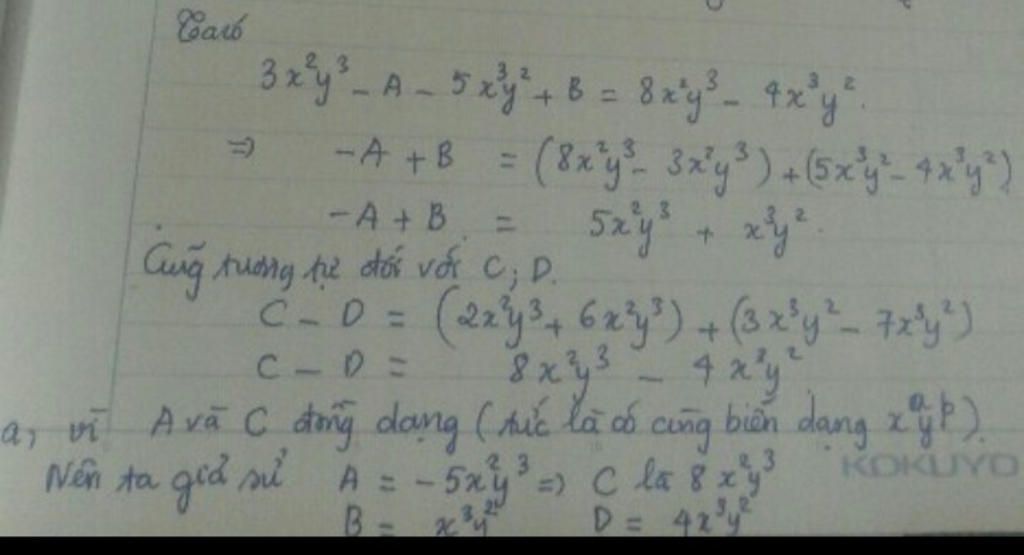 Ta có
3x²y³ - A - 5x³y² + B = 8x²y³ - 4x³y².
=> -A + B = (8x²y³ - 3x²y³) + (5x³y² - 4x³y²)
-A + B = 5x²y³ + x³y².
Cũng tương tự đối với C; D.
C - D = (2x²y³ + 6x²y³) + (3x³y² - 7x³y²)
C - D = 8x²y³ - 4x³y²
a, vì A và C đồng dạng (tức là có cùng biến dạng xᵃyᵝ).
Nên ta giả sử A = -5x²y³ => C là 8x²y³
KOKUYO
B = x³y² D = 4x³y²